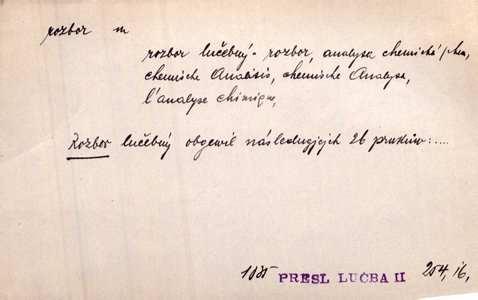 rozbor m
rozbor lučebný - rozbor, analysa chemická/chem,
chemische Analisis, chemische Analyse,
l'analyse chimique,
Rozbor lučebný obgewil následugjcjch 26 prwků:....
PRESL LUČBA II 254, 16,